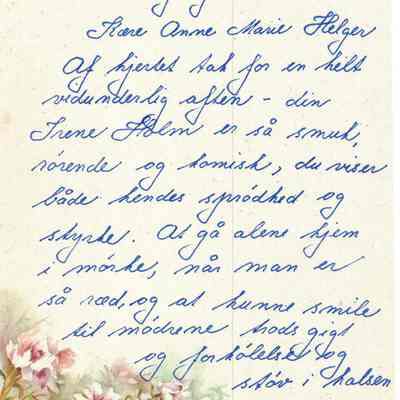 Kære Anne Marie Helger
Af hjertet tak for en helt
vidunderlig aften - din
Irene Holm er så smuk,
rørende og komisk, du viser
både hendes sprödhed og
styrke. At gå alene hjem
i mörke, når man er
så ræd, og at kunne smile
til mödrene trods gigt
og forkölelse og
stöv i halsen